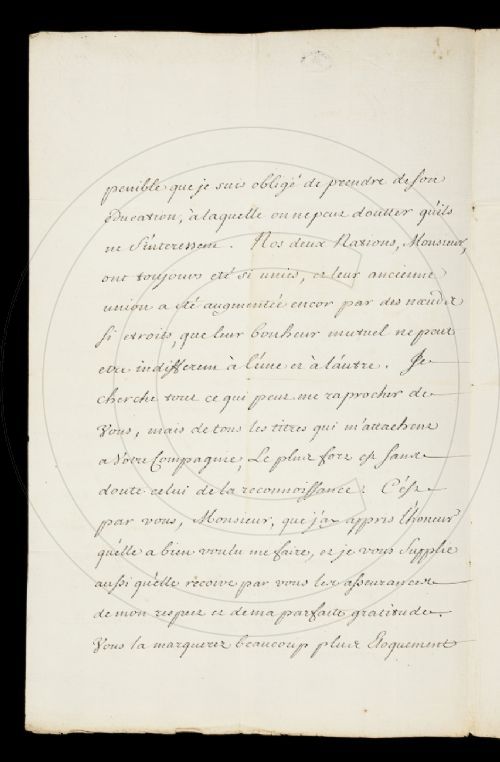 penible que je suis obligé de prendre de son
Education, à laquelle on ne peut doutter qu'ils
ne s'interessent. Nos deux Nations, Monsieur,
ont toujours eté si unies, et leur ancienne
union a été augmentée encor par des nœuds
si etroits, que leur bonheur mutuel ne peut
etre indifferent à l'une et à l'autre. Je
cherche tout ce qui peut me raprocher de
Vous, mais de tous les titres qui m'attachent
a Votre Compagnie, Le plus fort est sans
doute celui de la reconnoissance: C'est
par vous, Monsieur, que j'ay appris l'honeur
qu'elle a bien voulu me faire, et je vous Supplie
aussi qu'elle recoive par vous les asseurances
de mon respect et de ma parfaite gratitude.
Vous la marquerez beaucoup plus Eloquement